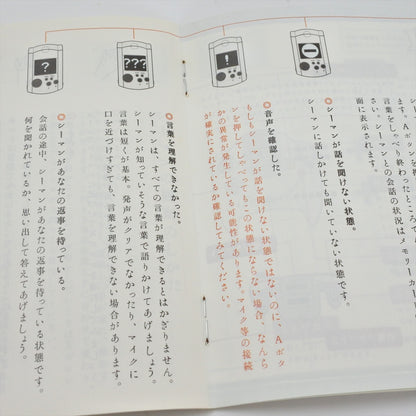 ます。Aボタ
言葉をしゃべり終わったところで
さい。シーマンとの会話の状況はメモリーカー
面に表示されます。
◎シーマンが話を聞けない状態。
シーマンに話しかけても聞いていない状態です。
◎音声を確認した。
もしもシーマンが話を聞けない状態ではないのに、Aボタ
ンを押してしゃべってもこの状態にならない場合、なんら
かの異常が発生している可能性があります。マイク等の接続
が確実にされているか確認してみてください。
!
◎言葉を理解できなかった。
シーマンは、すべての言葉が理解できるとはかぎりません。
シーマンが知っていそうな言葉で語りかけてあげましょう。
言葉は短くが基本。発声がクリアでなかったり、マイクに
口を近づけすぎても、言葉を理解できない場合があります。
???
◎シーマンがあなたの返事を待っている。
会話の途中、シーマンがあなたの返事を待っている状態です。
何を聞かれているか、思い出して答えてあげましょう。
?